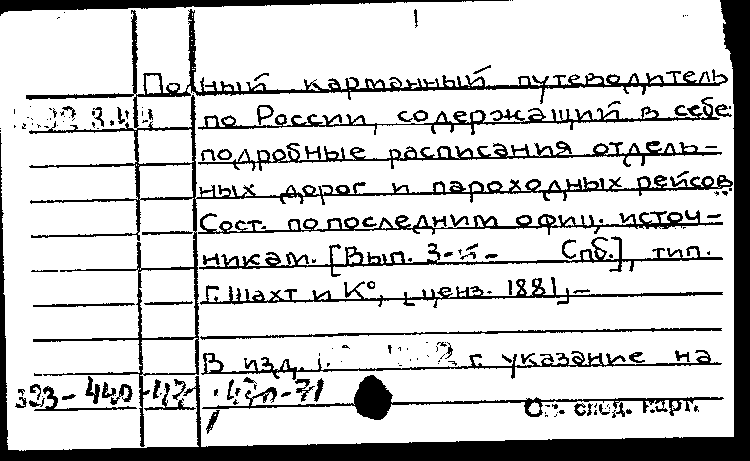 Полный карманный путеводитель
по России, содержащий в себе
подробные расписания отдель-
ных дорог и пароходных рейсов
Сост. по последним офиц. источ-
никам. [Вып. 3-й- Спб.], тип.
Г. Шахт и К°, [ценз. 1881]-
В изд. г. указание на
См. след. карт.